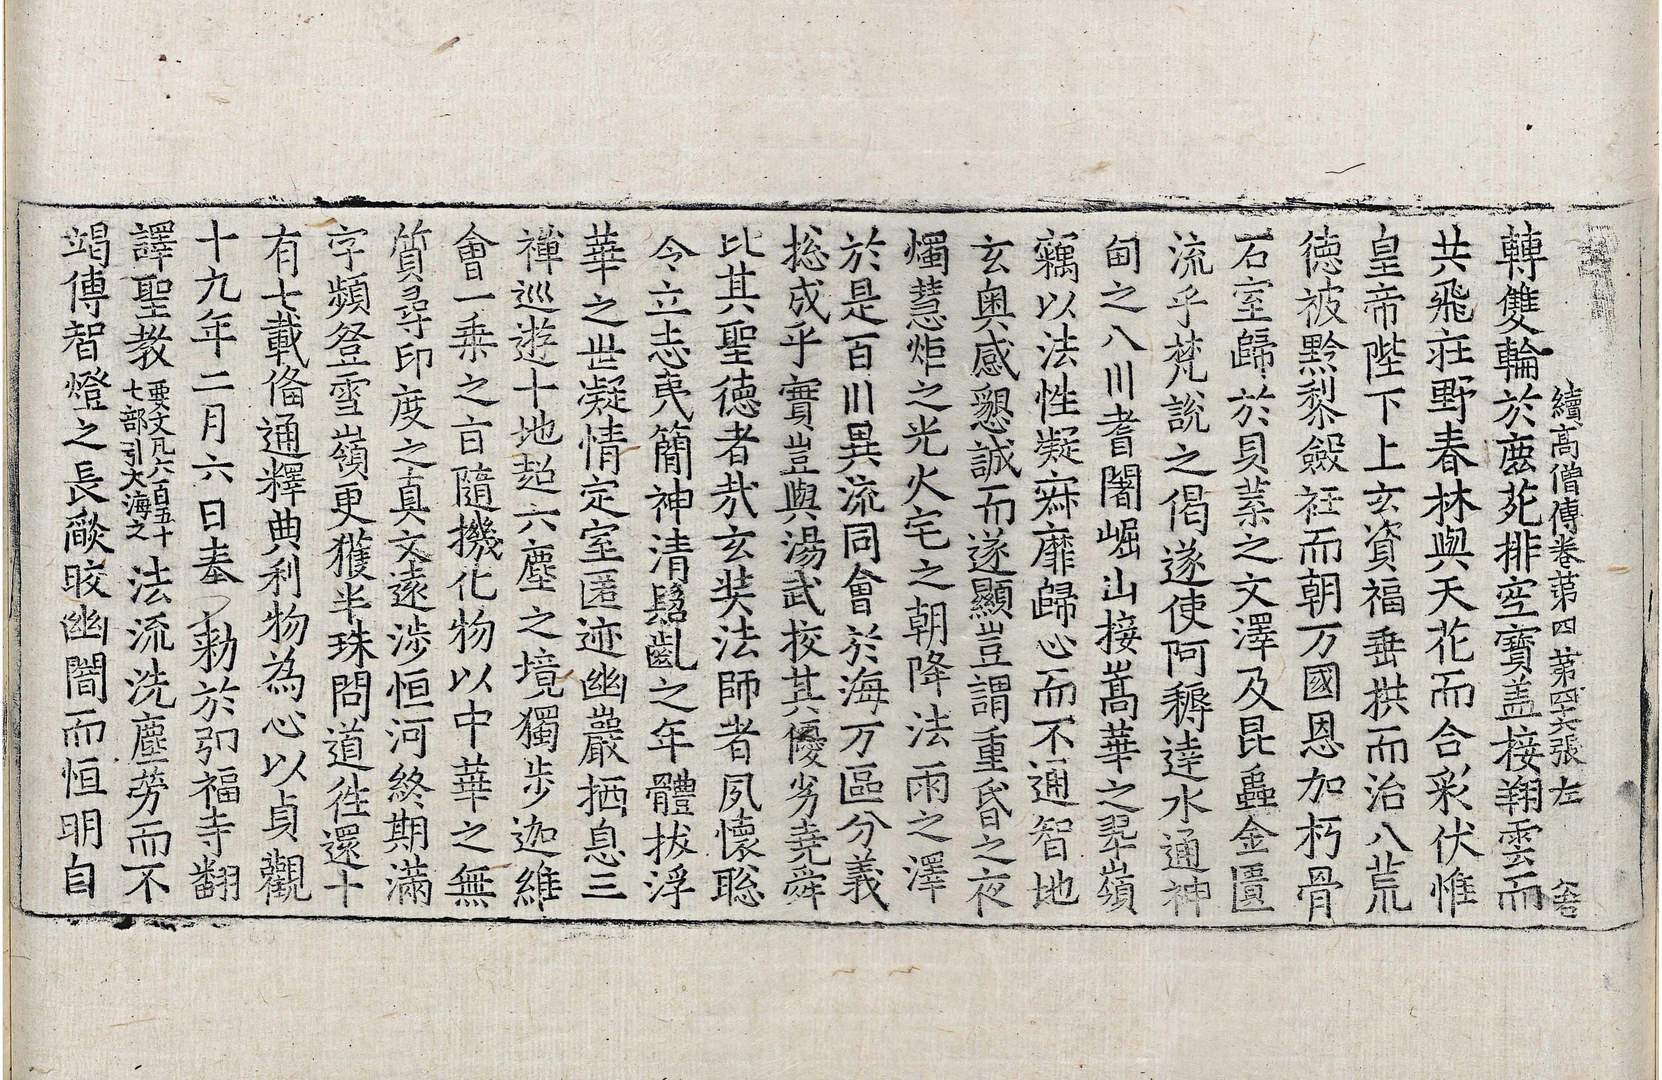 續高僧傳卷第四 第四十六張 左
轉雙輪於鹿菀排空寶盖接翔雲而
共飛莊野春林與天花而合彩伏惟
皇帝陛下上玄資福垂拱而治八荒
德被黔黎斂衽而朝万國恩加朽骨
石室歸於貝葉之文澤及昆蟲金匱
流乎梵說之偈遂使阿耨達水通神
甸之八川耆闍崛山接嵩華之翠嶺
竊以法性凝寂靡歸心而不通智地
玄奥感懇誠而遂顯豈謂重昏之夜
燭慧炬之光火宅之朝降法雨之澤
於是百川異流同會於海万區分義
揔成乎實豈與湯武校其優劣堯舜
比其聖德者㢤玄奘法師者夙懷聡
令立志夷簡神清齠齓之年體拔浮
華之世凝情定室匿迹幽巖栖息三
禪巡遊十地超六塵之境獨步迦維
會一乗之旨隨機化物以中華之無
質尋印度之真文遠涉恒河終期滿
字頻登雪嶺更獲半珠問道徃還十
有七載俻通釋典利物為心以貞觀
十九年二月六日奉勑於弘福寺翻
譯聖教要文凡六百五十七部引大海之法流洗塵勞而不
竭傳智燈之長燄皎幽闇而恒明自